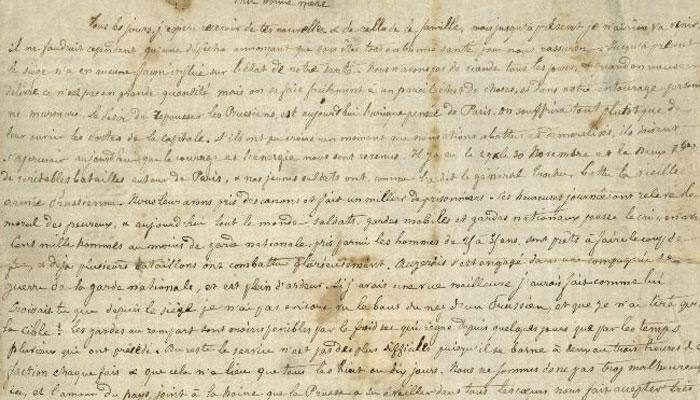 bonne mère
Tous les jours, j'espère recevoir de tes nouvelles & de celles de la famille, mais jusqu'à présent je n'ai rien vu venir
il ne faudrait cependant qu'une dépêche annonçant que vous êtes tous en bonne santé pour nous rassurer. Jusqu'à présent
le siège n'a en aucune façon influé sur l'état de notre santé. Nous n'avons pas de viande tous les jours, & quand on nous en
délivre ce n'est pas en grande quantité mais on se fait facilement à un pareil état de choses, et dans notre entourage personne
ne murmure. Le désir de repousser les Prussiens, est aujourd'hui l'unique pensée de Paris. On souffrira tout plutôt que de
leur ouvrir les portes de la capitale. S'ils ont pu croire un moment que nous étions abattus & démoralisés, ils doivent
s'apercevoir aujourd'hui que le courage et l'énergie nous sont revenus. Il y a eu le 29 & le 30 Novembre et le Deux Xbre
de véritables batailles autour de Paris, & nos jeunes soldats ont, comme l'a dit le général Trochu battu la vieille
armée Prussienne. Nous leur avons pris des canons et fait un millier de prisonniers. Ces heureuses journées ont relevé le
moral des peureux, & aujourd'hui tout le monde soldats, gardes mobiles et gardes nationaux pousse le cri, en avant
Cent mille hommes au moins de garde nationale, pris parmi les hommes de 25 à 35 ans, sont prêts à faire le coup de
feu, & déjà plusieurs bataillons ont combattu glorieusement. s'est engagé dans une compagnie de
guerre de la garde nationale, et est plein d'ardeur. Si j'avais une vue meilleure j'aurais fait comme lui
Croirais tu que depuis le siège je n'ai pas encore vu le bout du nez d'un Prussien, et que je n'ai tiré qu'à
la cible! Les gardes au rempart sont moins pénibles par le froid sec qui règne depuis quelques jours que par les temps
pluvieux qui ont précédé. Du reste le service n'est pas des plus difficiles puisqu'il se borne à deux ou trois heures de
faction chaque fois & que cela n'a lieu que tous les huit ou dix jours. Nous ne sommes donc pas trop malheureux
ici, et l'amour du pays, joint à la haine que la Prusse a su éveiller dans tous les cœurs nous fait accepter très